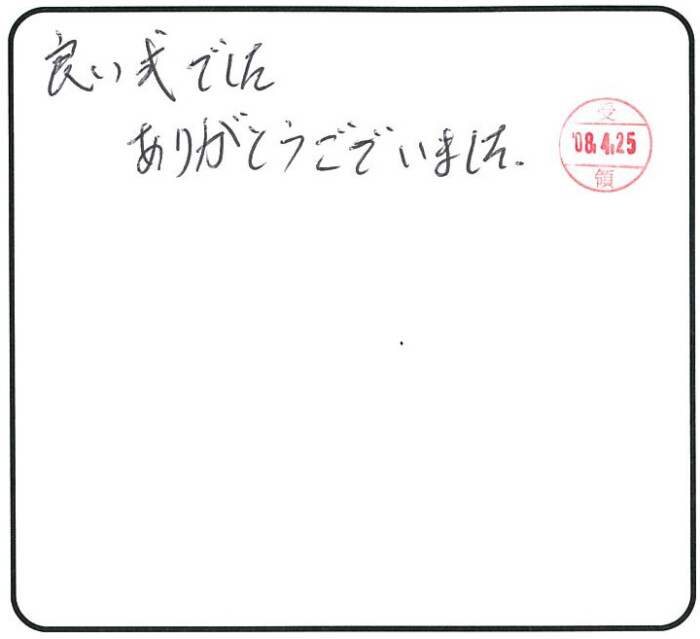 良い式でした
ありがとうございました。
受
'08.4.25
領